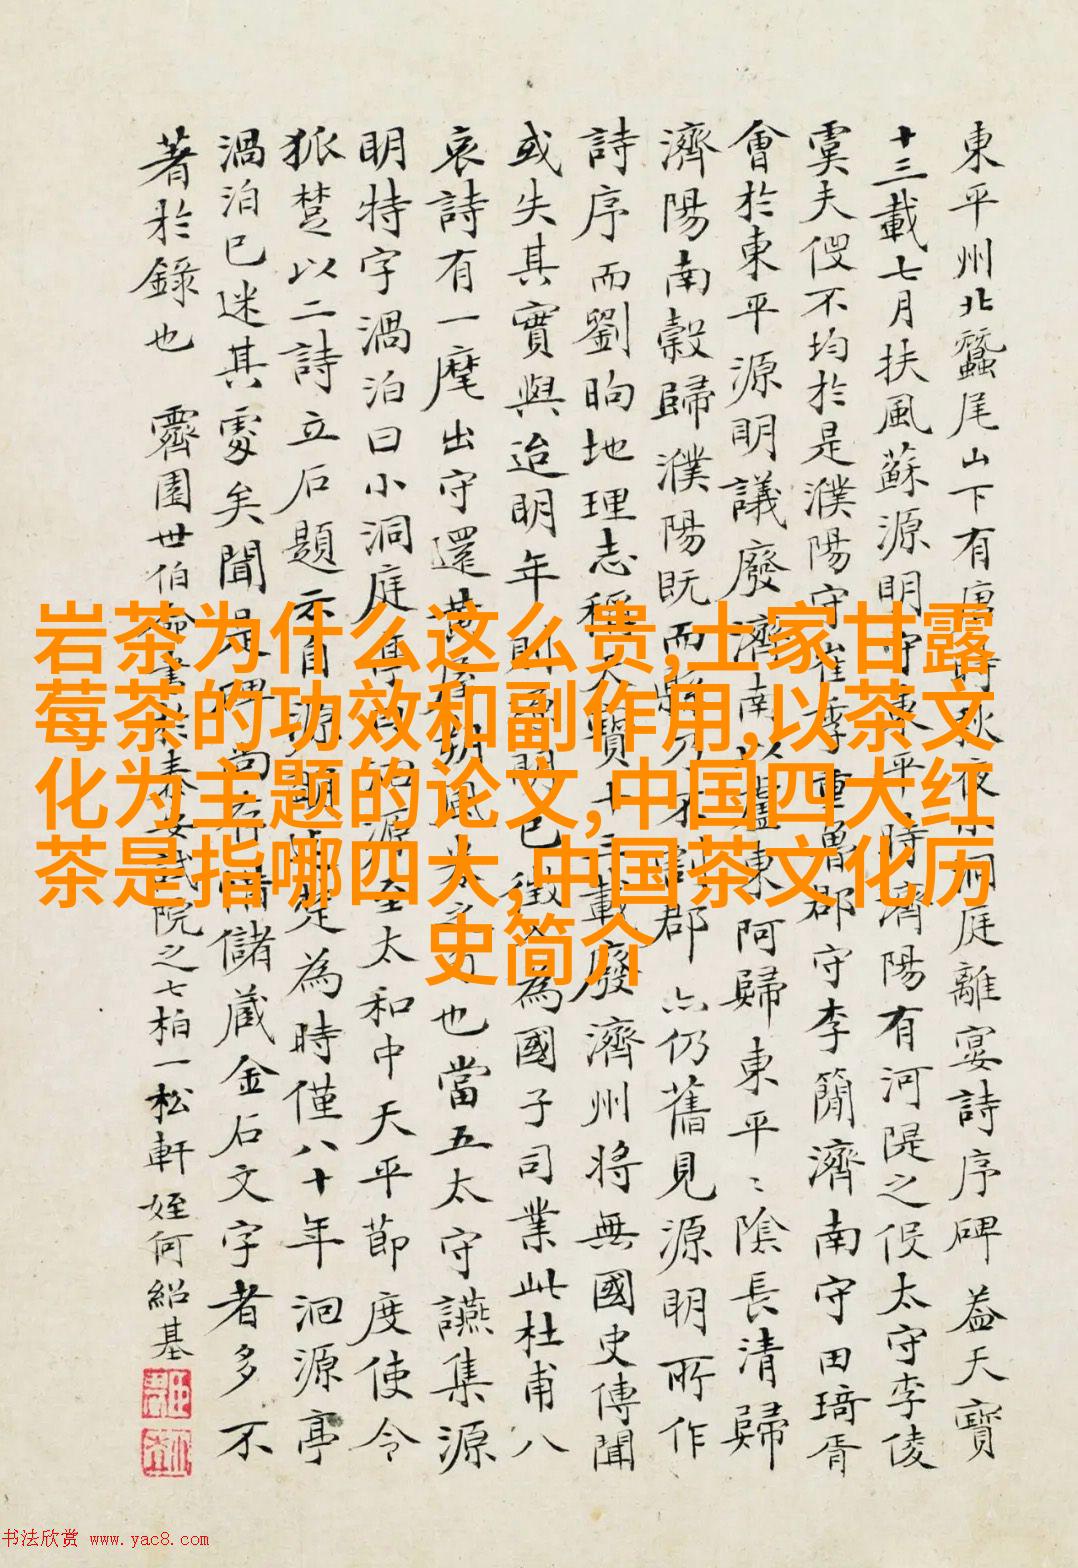 東平州北蠶尾山下有唐時秋夜小洞庭離宴詩序碑 蓋天寶
十三載七月扶風蘇源明守東平時濟陽有河隄之役太守李倰
虞夫役不均於是濮陽守崔季重魯郡守李簡濟南守田琦胥
會於東平源明議廢濟南以盧東阿歸東平〻陰長清歸
濟陽南穀歸濮陽既而縣分不 郡六仍舊見源明所作
詩序而劉昫地理志稱天寶十三載廢濟州將無國史傳聞
或失其實與迨明年 源明已徵 為國子司業此杜甫八
哀詩有一麾出守還黃屋朔風 也當五太守讌集源
明特字渦泊曰小洞庭 源 至太和中天平節度使令
狐楚以二詩立石題示 源 是為時僅八十年洄源亭
渦泊已迷其處矣聞是碑尚存 儲藏金石文字者多不
著於錄也 霽園世伯 書 泰 院之七柏一松軒 姪何紹基
岩茶为什么这么贵,土家甘露
莓茶的功效和副作用,以茶文
化为主题的论文,中国四大红
茶是指哪四大,中国茶文化历
史简介
书法欣赏 www.yac8.com